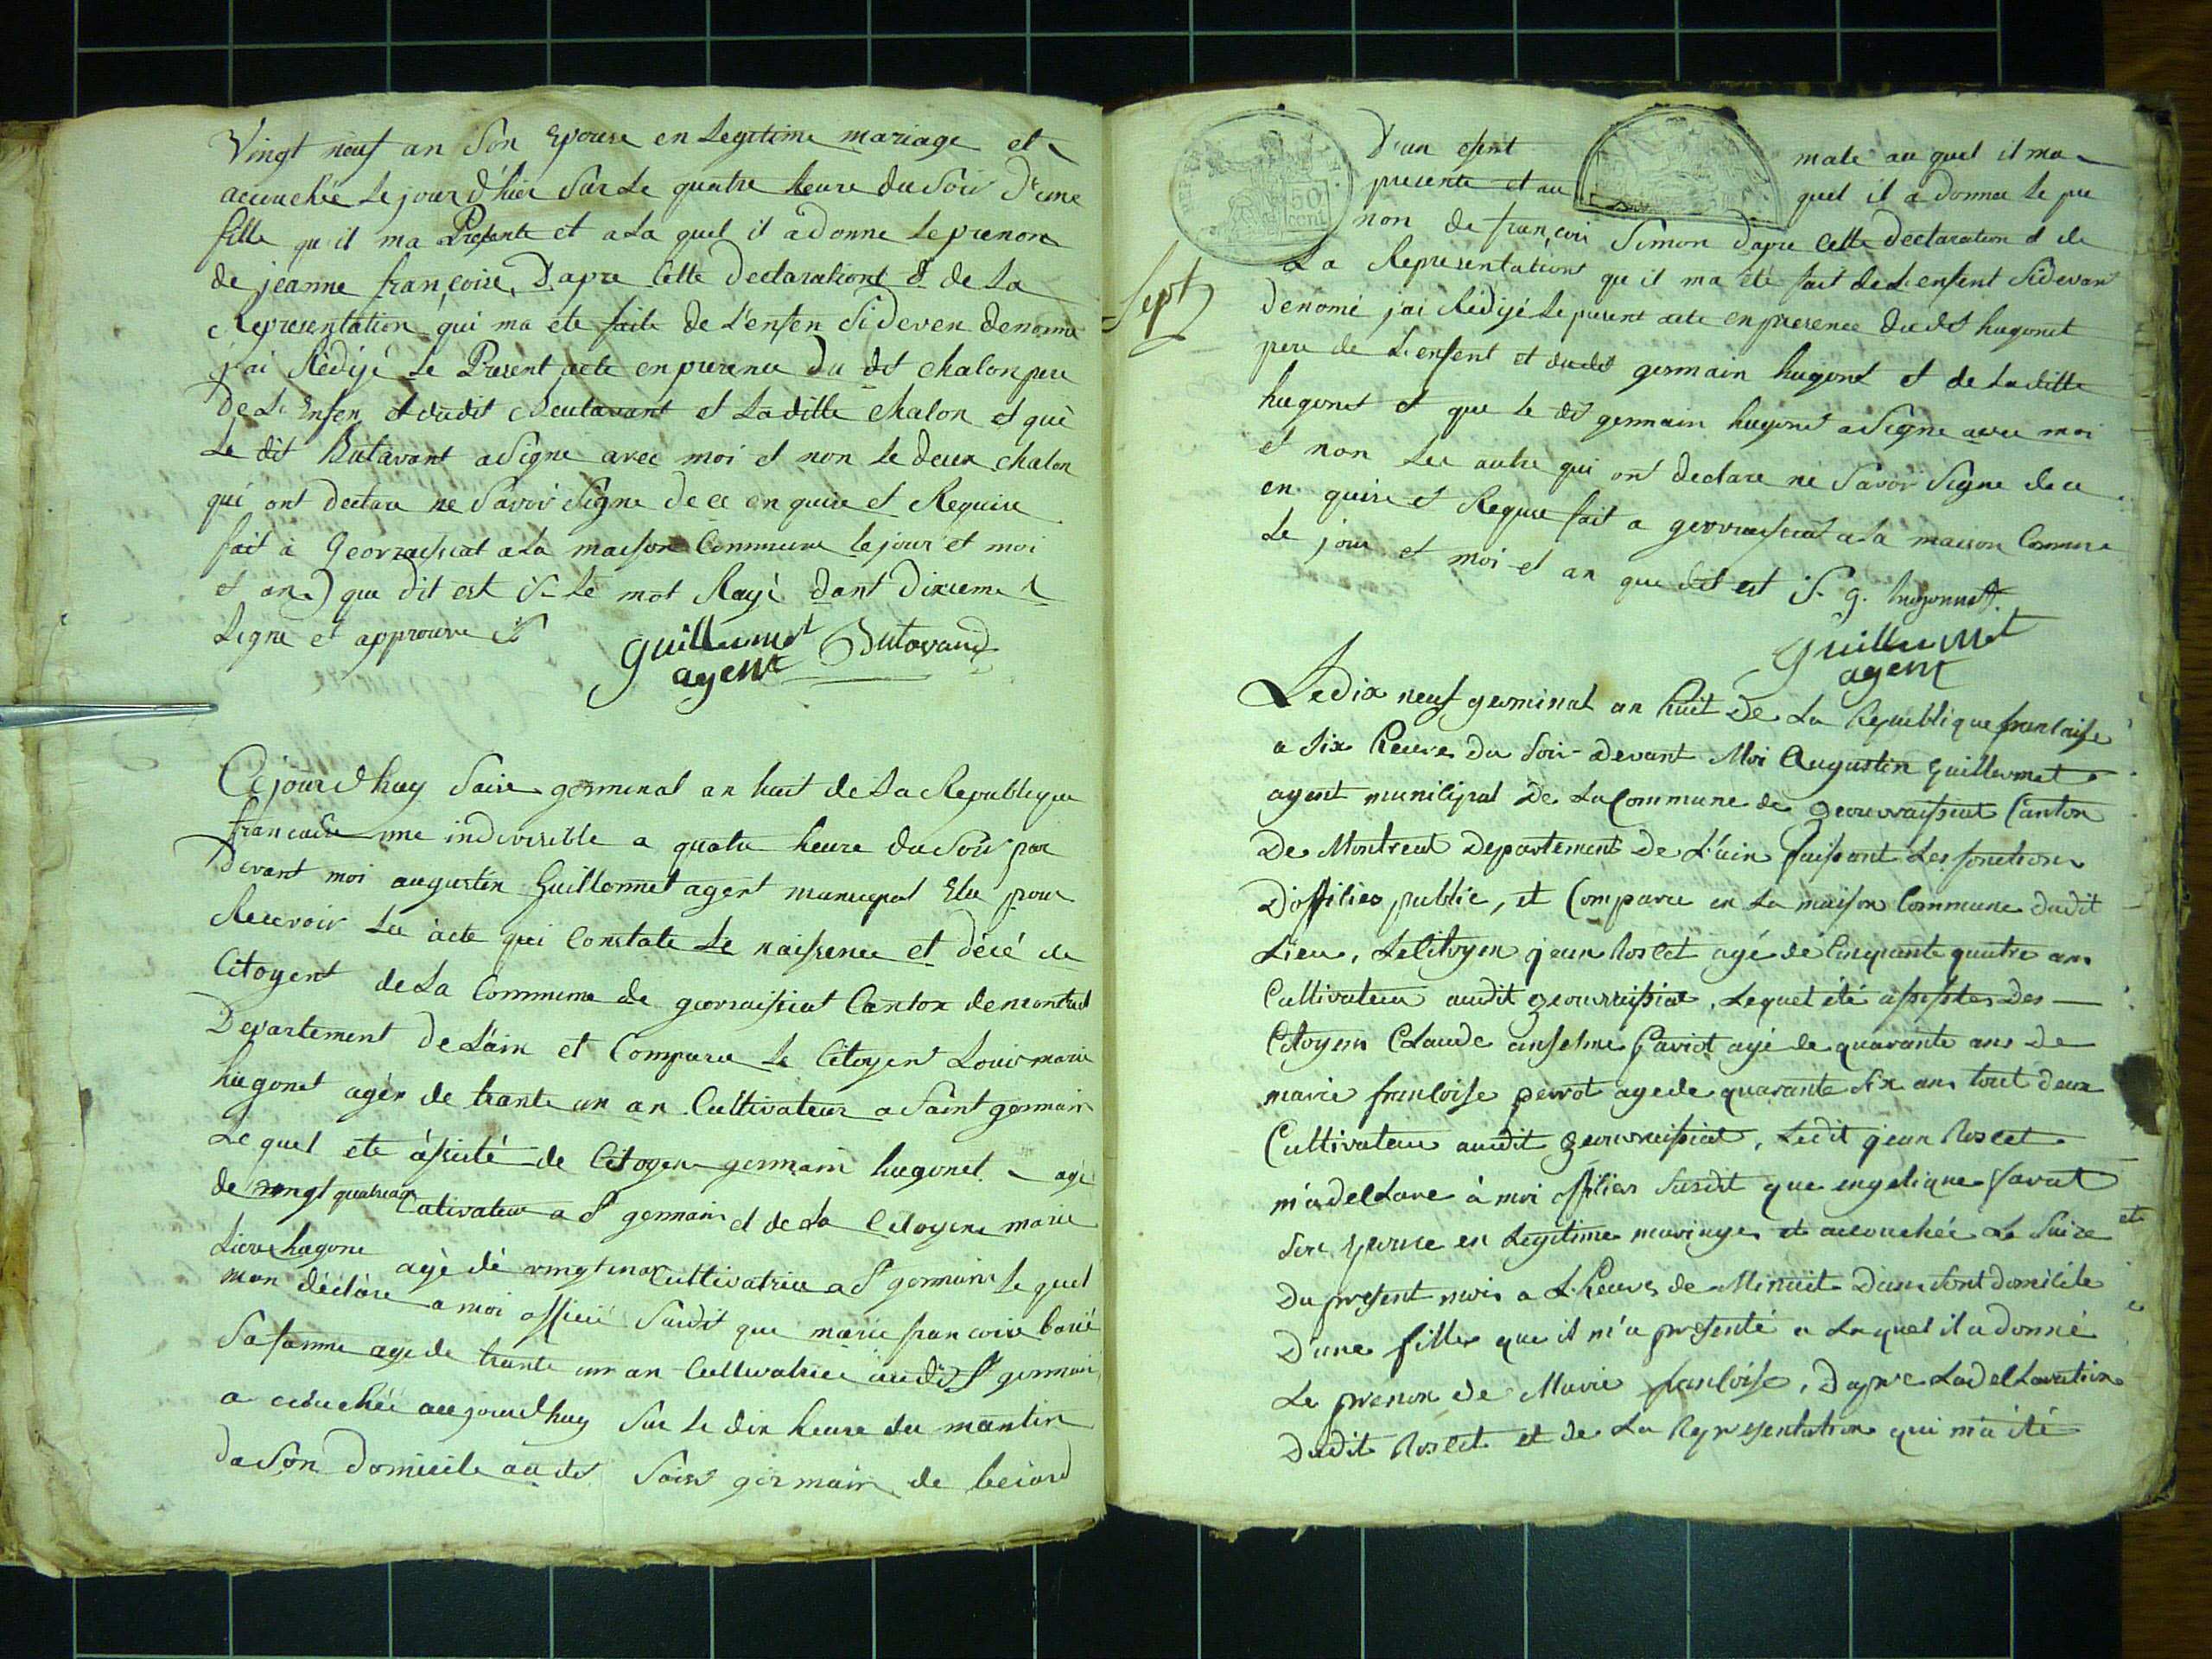 Vingt neuf an Son Epouse en Legitime mariage et
accouchée Le jour d'hier Sur Le quatre heure du Soir D'une
fille qu'il ma Presante et a La quel il a donne Le prenom
de jeanne françoise, Dapre Cette Declarationt & de La
Representation qui ma ete faite de L'enfen Sideven denomé
j'ai Rédigé Le Present acte en presence du dt chalon pere
De L'Enfen et dudit Beutavant et Laditte chalon et que
Le dit Butavant a Signe avec moi et non Le deux chalon
qui ont declare ne Savoir Signe de ce enquire et Require
fait à Geovraissiat a La maison Commune le jour et moi
et an que dit est S- Le mot Rayé dant Dixieme
Ligne et approuve
Guillermet Butavand
agent
Cejourdhuy Saise germinal an huit de La Republique
francaise une indivisible a quatre heure du Soir par
Devant moi augustin Guillermet agent municipal Elu pour
Recevoir Les acte qui Constate Le naissence et décé de
Citoyent de La Commune de geovraissiat Canton de montreal
Departement de L'ain et Comparu Le Citoyent Louis marie
hugonet agér de trante un an Cultivateur a Saint germain
Le quel ete assisté de Citoyen germain hugonet agé
de vingt quatre an Cultivateur a St germain et de La Citoyene marie
hugone agé dé vingt Cultivatrice a St germain Le quel
man déclare a moi officié Sudit que marie francoise
Sa famme age de trante un an Cultivatrice audit St germain
a acouchée aujourdhuy Sur Le dix heure du mantin
da Son domicile au dt Saint germain de beiard
D'un efent male au quel il ma
presente et au quel il a donner Le pre
non de françoi Simon Dapre Cette Declaration et de
La Representationt que il ma été fait de L'enfent Sidevant
Sept
denomé j'ai Rédigé Le present acte en presence dudt hugonet
pere de L'enfent et dudt germain hugonet et de Laditte
hugonet et que Le dt germain hugonet a Signe avec moi
et non Les autre qui ont declare ne Savoir Signe de ce
en quire et Requre fait a geovraissiat a La maison Comune
Le jour et moi et an que dit est S- g. hugonnet
Guillermet
agent
50
cent
Le dix neuf germinal an huit De La Republique francaise
a Six heure du Soir Devant Moi Augustin Guillermet
agent municipal De La Commune de geouvraissiat Canton
De Montreal Departement De L'ain faissant Les fonctions
D'offilier public, et Comparu en La maison Commune dudit
Lieu, Le Citoyen jean Roslet agé de Cinquante quatre ans
Cultivateur audit geouvraissiat, Lequel été assister Des
Citoyens Claude anselme Pariot agé de quarante ans De
marie francoise perrot age de quarante Six ans tout deux
Cultivateur audit geouvraissiat, Ledit jean Roslet
m'a declare à moi offilier Susdit que engelique favat
Son Epouse en Legitime mariage et accouchée Le Saize et
Du present mois a L'heure de Minuit Dans Sont Domicile
D'une fille que il m'a presenté a Laquel il a donné
Le prenon De Marie francoise, Dapre La declaration
Dudit Roslet et de La Representation qui m'a été